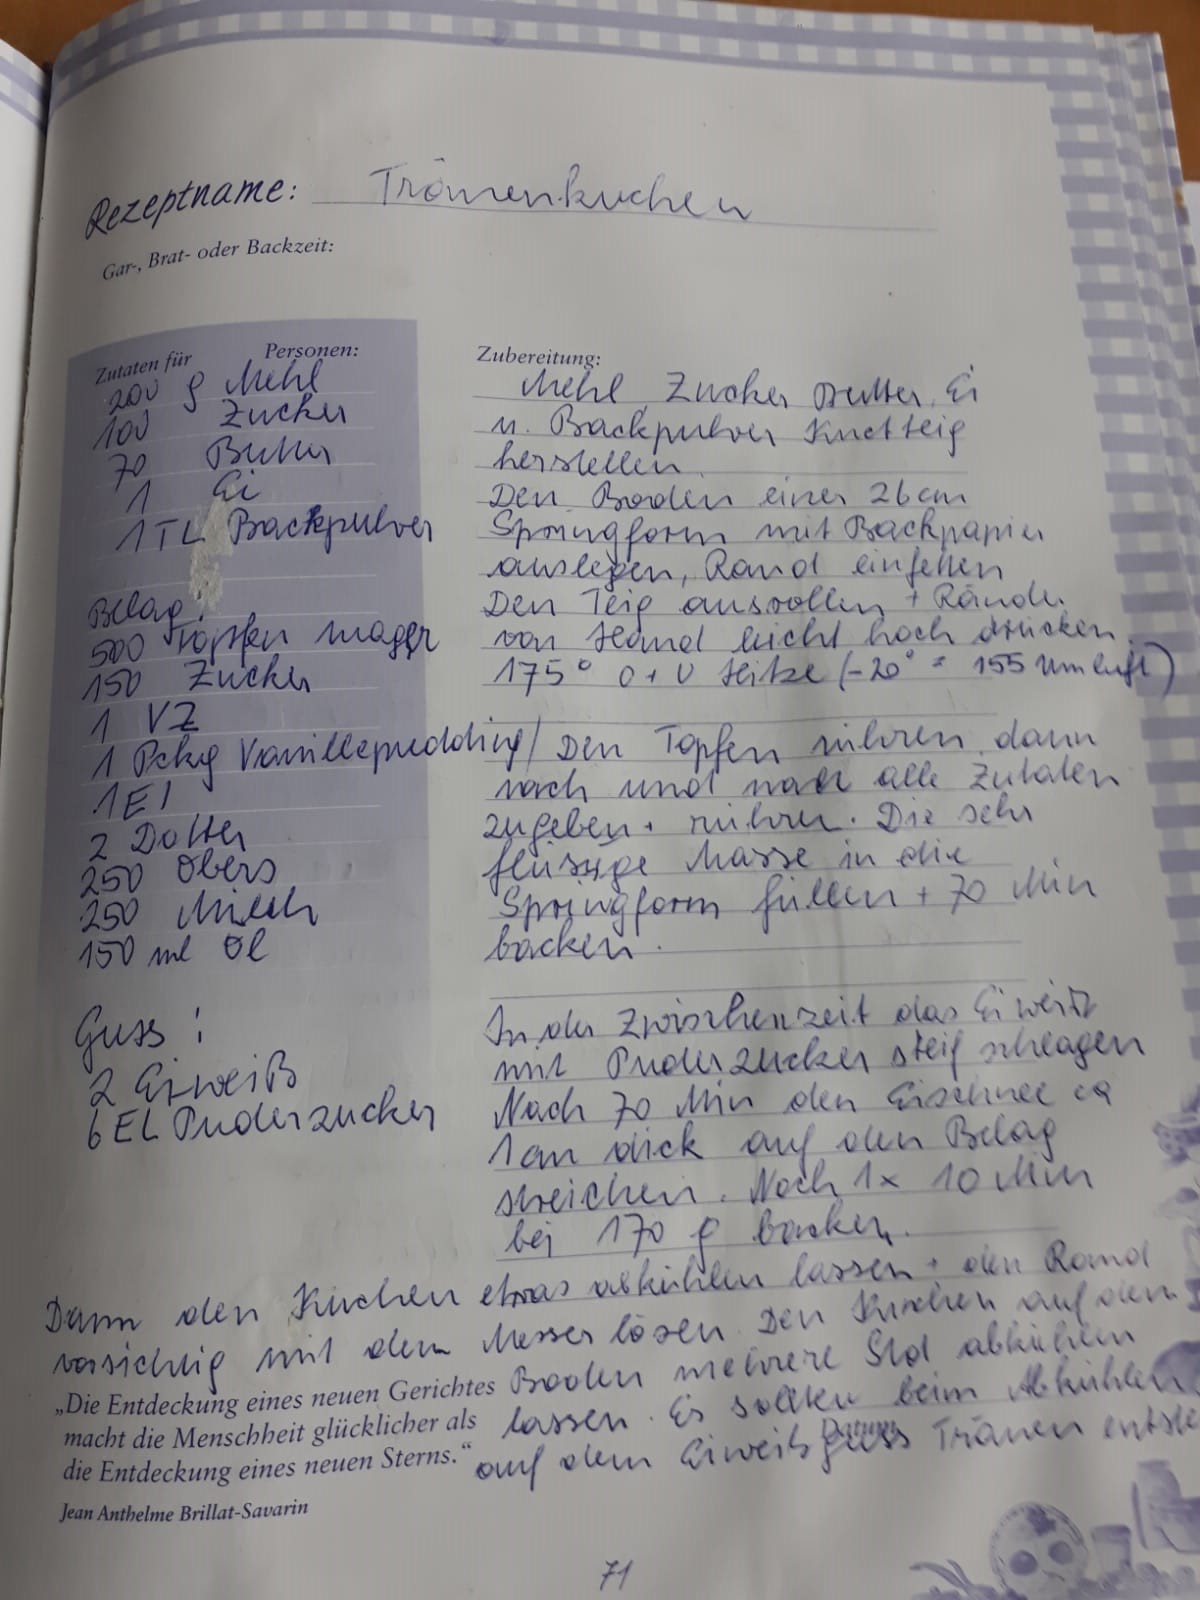 Rezeptname: Tränenkuchen
Gar-, Brat- oder Backzeit:
Zutaten für Personen:
200 g Mehl
100 Zucker
70 Butter
1 Ei
1 TL Backpulver
Belag:
500 Topfen mager
150 Zucker
1 VZ
1 Pckg Vanillepudding/
1 EI
2 Dotter
250 Obers
250 Milch
150 ml Öl
Guss:
2 Eiweiß
6 EL Puderzucker
Zubereitung:
Mehl, Zucker Butter, Ei
u. Backpulver Knetteig
herstellen.
Den Boden einer 26 cm
Springform mit Backpapier
auslegen, Rand einfetten
Den Teig ausrollen + Ränder
von Hand leicht hoch drücken.
175° O + U Hitze (-20° = 155 Umluft)
Den Topfen rühren, dann
nach und nach alle Zutaten
zugeben + rühren. Die sehr
flüssige Masse in die
Springform füllen + 70 Min
backen.
In der Zwischenzeit das Eiweiß
mit Puderzucker steif schlagen
Nach 70 Min den Eischnee ca
1 cm dick auf den Belag
streichen. Noch 1x 10 Min
bei 170 g backen.
Dann den Kuchen etwas abkühlen lassen + den Rand
vorsichtig mit dem Messer lösen. Den Kuchen auf dem
Boden mehrere Std abkühlen
lassen. Es sollten beim Abkühlen
auf dem Eiweißguss Tränen entste
Datum
„Die Entdeckung eines neuen Gerichtes
macht die Menschheit glücklicher als
die Entdeckung eines neuen Sterns.“
Jean Anthelme Brillat-Savarin
71